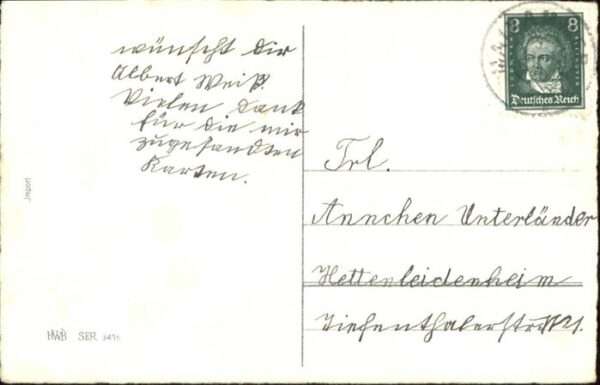 wünscht Dir
Albert Weiß.
Vielen Dank
für die mir
zugesandten
Karten.
8 8
Deutsches Reich
Frl.
Annchen Unterländer
Hettenleidenheim
Tiefenthalerstr.
Import
HWB SER.